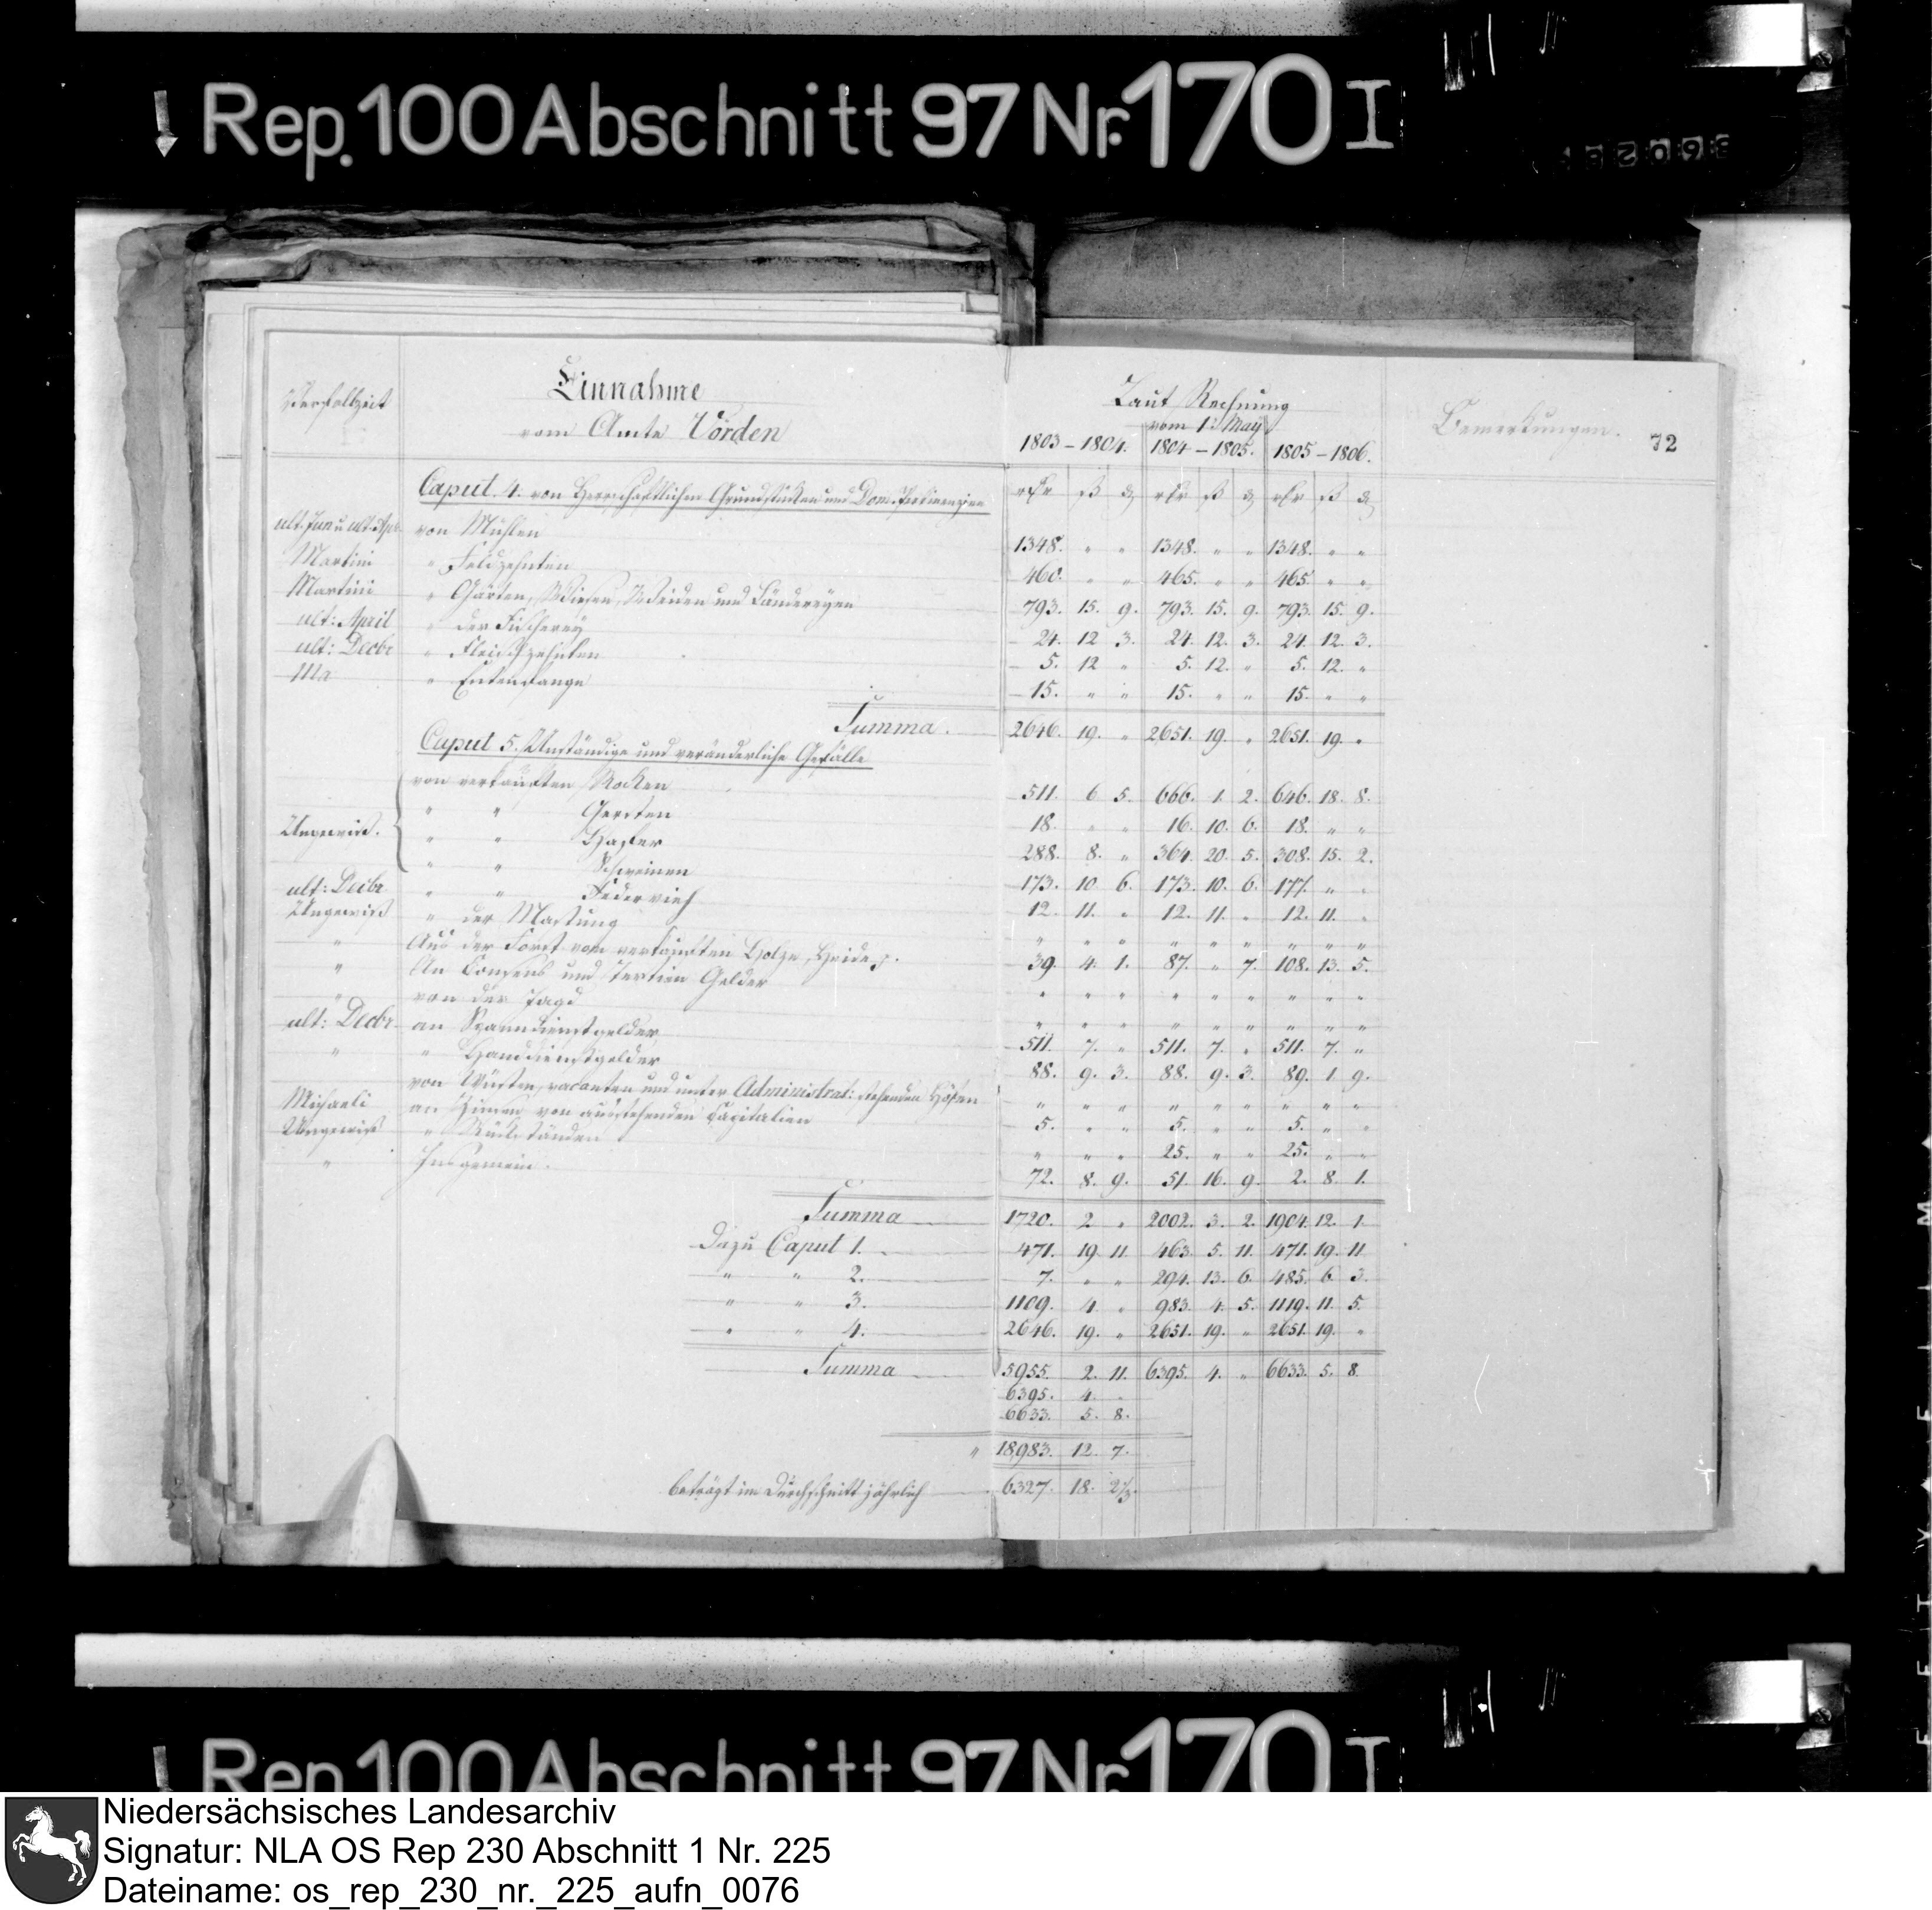 Rep. 100 Abschnitt 97 Nr. 170 I
Verfallzeit
Einnahme
vom Amte Vörden
Laut Rechnung
vom 1. May
1803 – 1804. 1804 – 1805. 1805 – 1806.
Bemerkungen.
72
Caput 4. von Herrschaftlichen Grundstücken und Dom. Pertinenzien
ult. Jan u ult. Apr. von Mühlen 1348. " " 1348. " " 1348. " "
Martini " Feldzehnten 460. " " 465. " " 465. " "
Martini " Gärten, Wiesen, Weiden und Ländereyen 793. 15. 9. 793. 15. 9. 793. 15. 9.
ult: April " der Fischerey 24. 12 3. 24. 12. 3. 24. 12. 3.
ult: Decbr " Fleischzehnten 5. 12 " 5. 12. " 5. 12. "
" Entenfange 15. " " 15. " " 15. " "
Summa. 2646. 19. " 2651. 19. " 2651. 19. "
Caput 5. Unständige und veränderliche Gefälle
von verkauften Rocken 511. 6 5. 666. 1. 2. 646. 18. 8.
" " Gersten 18. " " 16. 10. 6. 18. " "
Ungewiß. " " Hafer 288. 8. " 364. 20. 5. 308. 15. 2.
" " Schweinen 173. 10 6. 173. 10. 6. 177. " "
ult: Decbr " " Federvieh 12. 11. " 12. 11. " 12. 11. "
Ungewiß " der Mastung " " " " " " " " "
" Aus der Forst vom verkauften Holze, Heide 39. 4. 1. 87. " 7. 108. 13. 5.
" An Consens und Tertien Gelder " " " " " " " " "
" von der Jagd " " " " " " " " "
ult: Decbr. an Spanndienstgelder 511. 7. " 511. 7. " 511. 7. "
" " Handdienstgelder 88. 9. 3. 88. 9. 3. 89. 1 9.
von Wüsten, vacanten und unter Administrat: stehenden Höfen " " " " " " " " "
Michaeli an Zinsen von ausstehenden Capitalien 5. " " 5. " " 5. " "
Ungewiß " Rückständen " " " 25. " " 25. " "
" Insgemein. 72. 8. 9. 51. 16. 9. 2. 8. 1.
Summa 1720. 2 " 2002. 3. 2. 1904. 12. 1.
Dazu Caput 1. 471. 19 11. 463. 5. 11. 471. 19. 11
" " 2. 7. " " 294. 13. 6. 485. 6 3.
" " 3. 1109. 4 " 983. 4. 5. 1119. 11. 5.
" " 4. 2646. 19. " 2651. 19. " 2651. 19. "
Summa 5955. 2. 11. 6395. 4. " 6633. 5. 8.
6395. 4. "
6633. 5. 8.
" 18,983. 12. 7.
beträgt im Durchschnitt jährlich 6327. 18. 2 1/3.
Rep. 100 Abschnitt 97 Nr. 170 I
Niedersächsisches Landesarchiv
Signatur: NLA OS Rep 230 Abschnitt 1 Nr. 225
Dateiname: os_rep_230_nr._225_aufn_0076